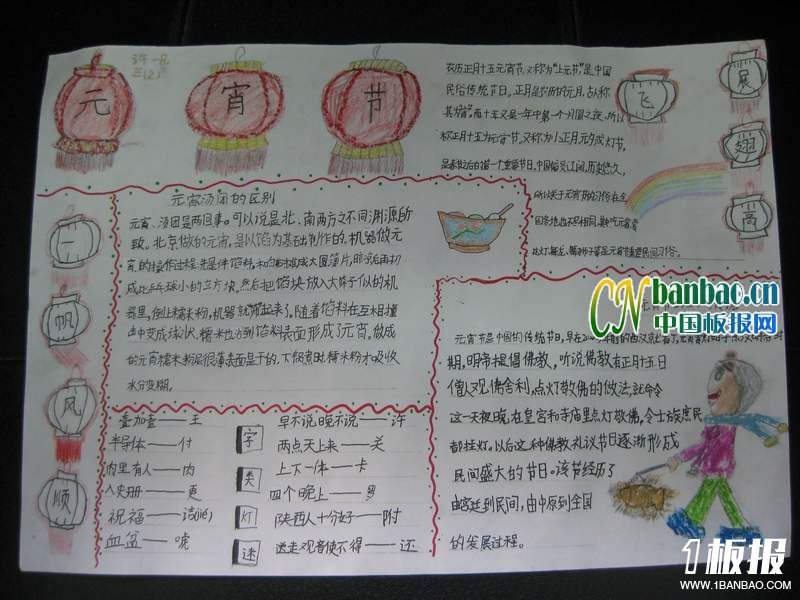 元宵节
许一凡
农历正月十五元宵节，又称为“上元节”是中国
民俗传统节日，正月是农历的元月，古人称
其为“宵”，而十五又是一年中第一个月圆之夜，所以
称正月十五为元宵节，又称为
是春节之后的第一个重要节日，中国幅员辽阔，历史悠久，
所以关于元宵节的习俗在全
国各地也不尽相同，其中吃元宵
飞
展翅高
元宵汤团的区别
元宵、汤团是两回事。可以说是北、南两方之不同渊源所
致。北京做的元宵，是以馅为基础制作的。机器做元
宵的操作过程，先是伴馅料，和的匀摊成大圆薄片，晾凉后再切
成比乒乓球小的立方块。然后把馅块放入大筛子似的机
器里，倒上糯米粉，机器就筛起来了。随着馅料在互相撞
击中变成球状，糯米也沾到馅料表面形成了元宵。做成
的元宵糯米粉层很薄表面是干的，下锅煮时糯米粉才吸收
水分变糊。
一
帆
风
顺
CN banbao.cn
中国板报网
元宵节是中国的传统节日，早在2000
期，明帝提倡佛教，听说佛教有正月十五日
僧人观佛舍利，点灯敬佛的做法，就命令
这一天夜晚，在皇宫和寺庙里点灯敬佛，令士族庶民
都挂灯。以后这种佛教礼议节日逐渐形成
民间盛大的节日。该节经历了
由宫廷到民间，由中原到全国
的发展过程。
字类灯迷
叠加叠——王
半导体——付
内里有人——肉
入史册——更
祝福——
血盆——唬
早不说晚不说——许
两点天上来——关
上下一体——卡
四个晚上——罗
陕西人十分好——附
送走观音使不得——还
1板报
WWW.1BANBAO.COM